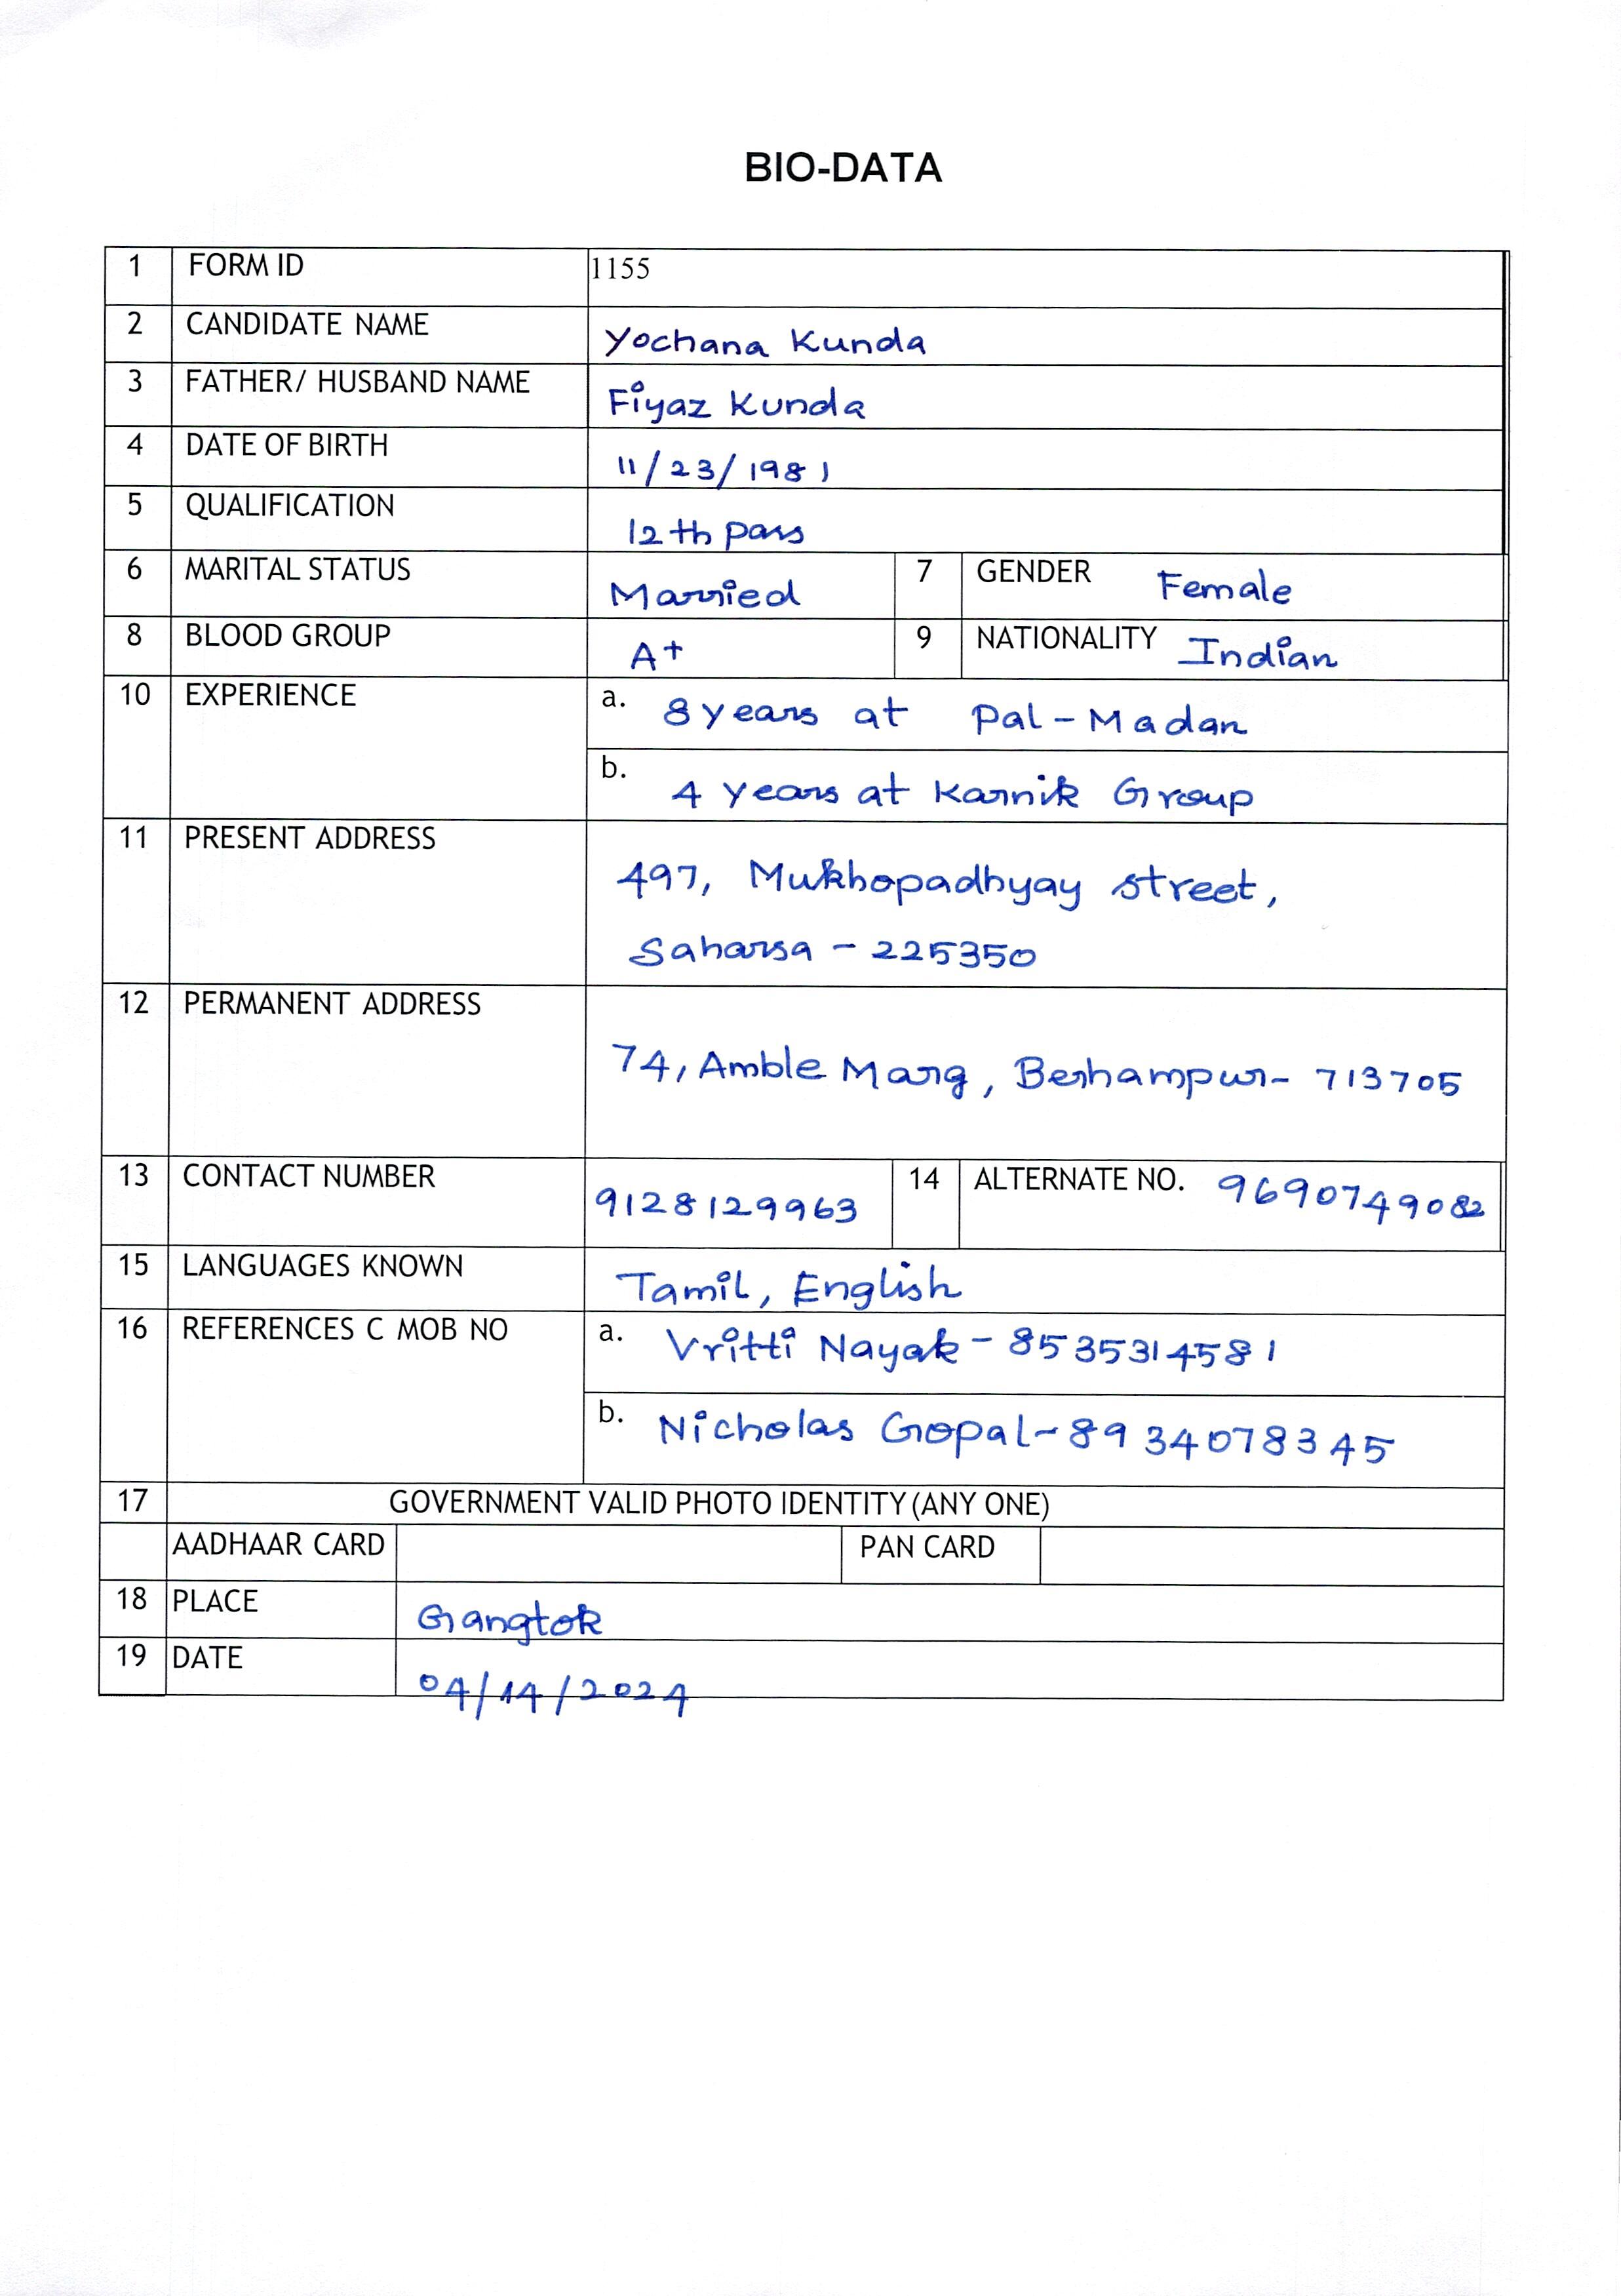 BIO-DATA
1 FORM ID 1155
2 CANDIDATE NAME Yochana Kunda
3 FATHER/ HUSBAND NAME Fiyaz Kunda
4 DATE OF BIRTH 11/23/1981
5 QUALIFICATION 12th pass
6 MARITAL STATUS Married 7 GENDER Female
8 BLOOD GROUP A+ 9 NATIONALITY Indian
10 EXPERIENCE a. 8 years at Pal-Madan
b. 4 years at Karnik Group
11 PRESENT ADDRESS
497, Mukhopadhyay street,
Saharsa - 225350
12 PERMANENT ADDRESS
74, Amble Marg, Berhampur- 713705
13 CONTACT NUMBER 9128129963 14 ALTERNATE NO. 9690749082
15 LANGUAGES KNOWN Tamil, English
16 REFERENCES C MOB NO a. Vritti Nayak - 8535314581
b. Nicholas Gopal-8934078345
17 GOVERNMENT VALID PHOTO IDENTITY (ANY ONE)
AADHAAR CARD PAN CARD
18 PLACE Gangtok
19 DATE 04/14/2024